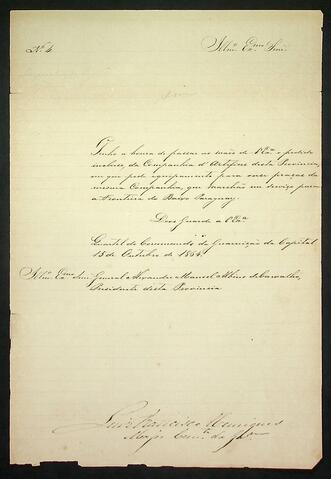 Nº 4
Illmo. Exmo. Senr.
Tenho a honra de passar as mãos de V Exa. o pedido
incluso, da Companhia d'Artifices desta Provincia,
em que pede equipamento para onze praças da
mesma Companhia, que marchão em serviço para
a Fronteira do Baixo Paraguay.
Deos Guarde a V Exa.
Quartel do Commando da Guarnição da Capital
15 de Outubro de 1864.
Illmo. Exmo. Senr. General Alexandre Manoel Albino de Carvalho,
Presidente desta Provincia
Luiz Francisco Henriques
Major